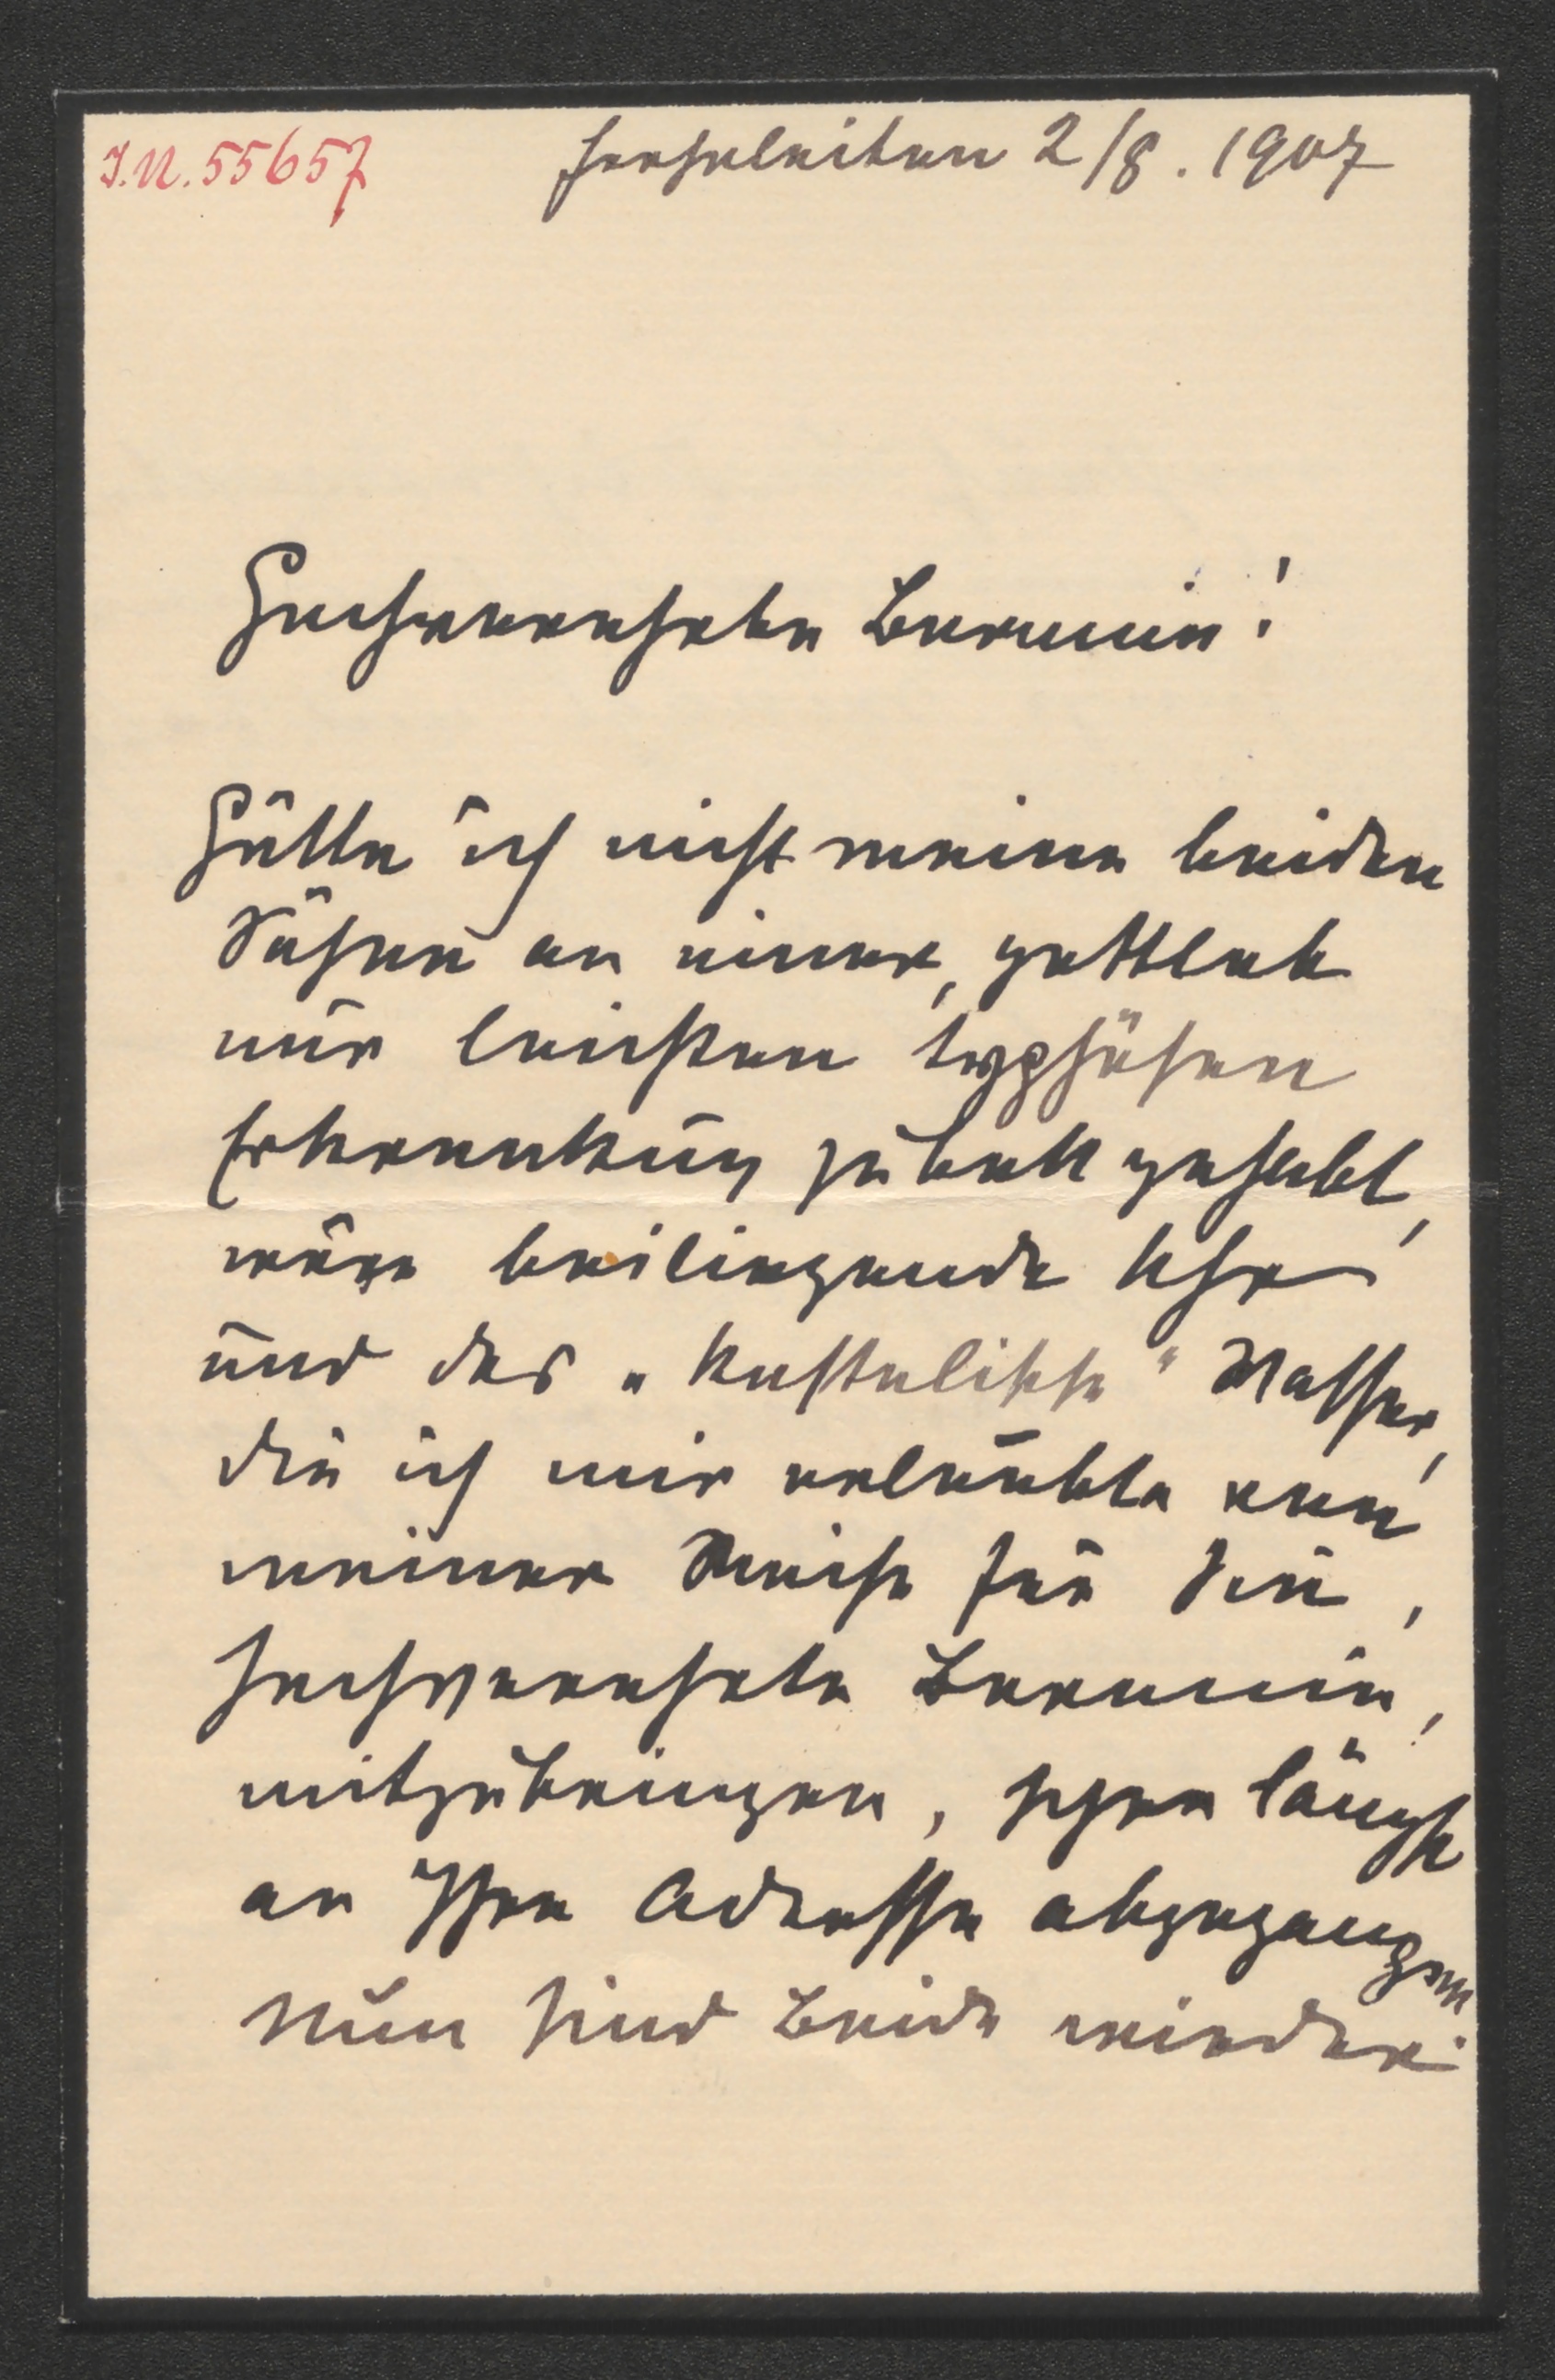 I.N. 55657
Forsteleiten 2/8. 1907
Hochverehrte Baronin!
Hätte ich nicht meine beiden
Söhne an einer, gottlob
nur leichten typhösen
Erkrankung zu Bett gehabt,
wäre beiliegende Uhr
und das „Kastalische" Wasser,
die ich mir erlaubte von
meiner Reise für Sie,
hochverehrte Baronin,
mitzubringen, schon längst
an Ihre Adresse abgegangen.
Nun sind Beide wieder